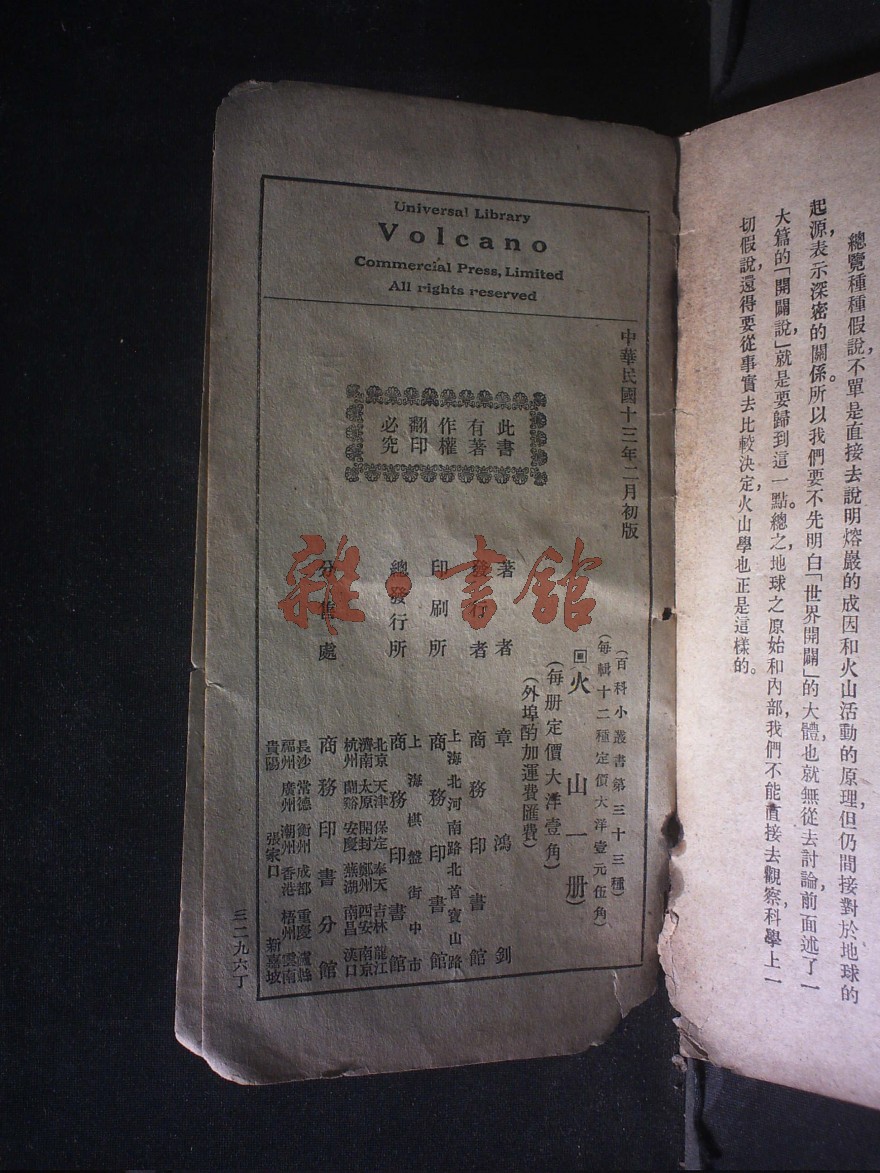 總覽種種假說，不單是直接去說明熔巖的成因和火山活動的原理，但仍間接對於地球的
起源，表示深密的關係。所以我們要不先明白「世界開闢」的大體，也就無從去討論，前面述了一
大篇的「開闢說」，就是要歸到這一點。總之，地球之原始和內部，我們不能直接去觀察，科學上一
切假說，還得要從事實去比較決定，火山學也正是這樣的。
Universal Library
Volcano
Commercial Press, Limited
All rights reserved
中華民國十三年二月初版
此書
有著
作權
翻印
必究
(百科小叢書第三十三種)
(每輯十二種定價大洋壹元伍角)
火山一册
(每册定價大洋壹角)
(外埠酌加運費匯費)
著者 章鴻釗
發行者 商務印書館
印刷所 上海北河南路北首寶山路
商務印書館
總發行所 上海棋盤街中市
商務印書館
分售處 商務印書分館
北京 天津 保定 奉天 吉林 龍江
濟南 太原 開封 鄭州 西安 南京
杭州 蘭谿 安慶 蕪湖 南昌 漢口
長沙 常德 衡州 成都 重慶 瀘縣
福州 廣州 潮州 香港 梧州 雲南
貴陽 張家口 新嘉坡
三二九六丁
雜·書館